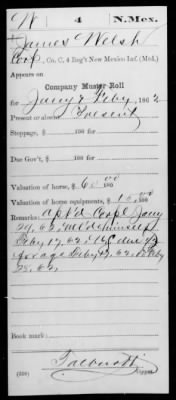 W | 4 | N.Mex.
James Welsh
Corp., Co. C, 4 Reg't New Mexico Inf. (Mtd.)
Appears on
Company Muster Roll
for Jany & Feby, 1862
Present or absent Present
Stoppage, $ 100 for
Due Gov't, $ 100 for
Valuation of horse, $ 65 00/100
Valuation of horse equipments, $ 15 00/100
Remarks: Apt'd Corpl Jany
29, 62,
Feby 17, 62,
forage Feby 17, 62, to Feby
28, 62.
Book mark:
(350)